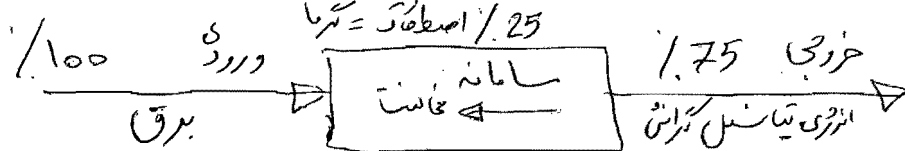 ٪25 اصطکاک = گرما
٪100 ورودی
برق
سامانه
٪75 خروجی
انرژی پتانسیل گرانش